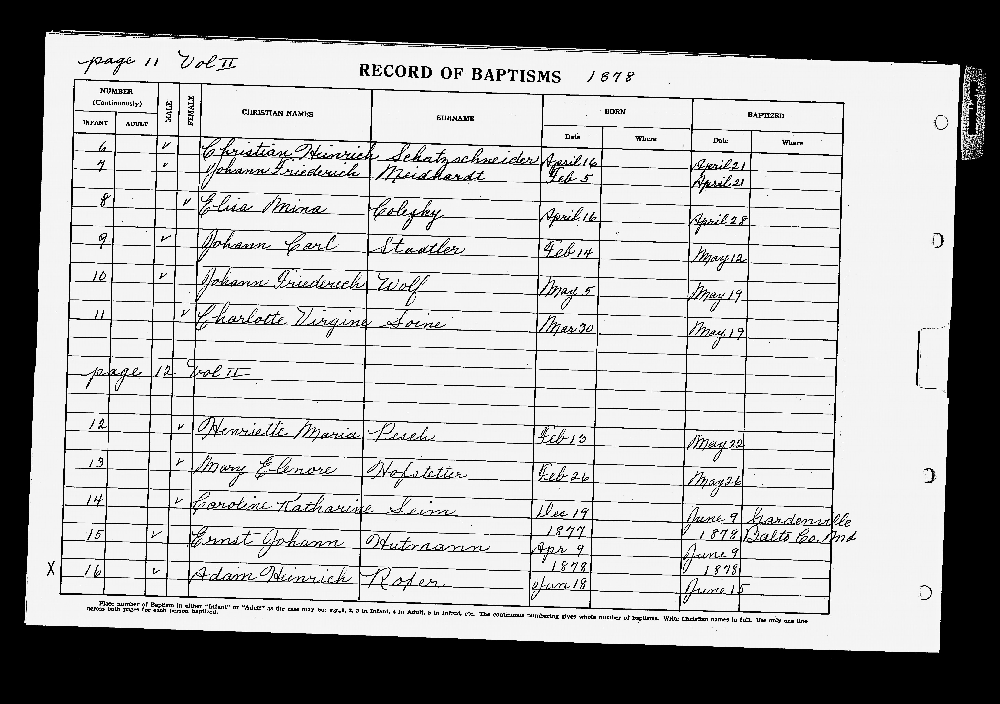 page 11 Vol II
RECORD OF BAPTISMS 1878
NUMBER (Continuously) MALE FEMALE CHRISTIAN NAMES SURNAME BORN BAPTIZED
INFANT ADULT Date Where Date Where
6 ✓ Christian Heinrich Schatzschneider April 16 April 21
7 ✓ Johann Friederich Meidhardt Feb 5 April 21
8 ✓ Elisa Mina April 16 April 28
9 ✓ Johann Carl Stadtler Feb 14 May 12
10 ✓ Johann Friederich Wolf May 5 May 19
11 ✓ Charlotte Virgine Soine Mar 30 May 19
page 12 Vol II
12 ✓ Henriette Maria Pesch Feb 13 May 22
13 ✓ Mary Elenore Hofstetter Feb 26 May 26
14 ✓ Caroline Katharine Seim Dec 19 June 9 Gardenville
1877 1878 Balto Co. Md
15 ✓ Ernst Johann Hutmann Apr 9 June 9
1878 1878
X 16 ✓ Adam Heinrich Roper Jan 18 June 15
Place number of Baptism in either "Infant" or "Adult" as the case may be: e.g., 1, 2, 3 in Infant, 4 in Adult, 5 in Infant, etc. The continuous numbering gives whole number of baptisms. Write Christian names in full. Use only one line
across both pages for each person baptized.